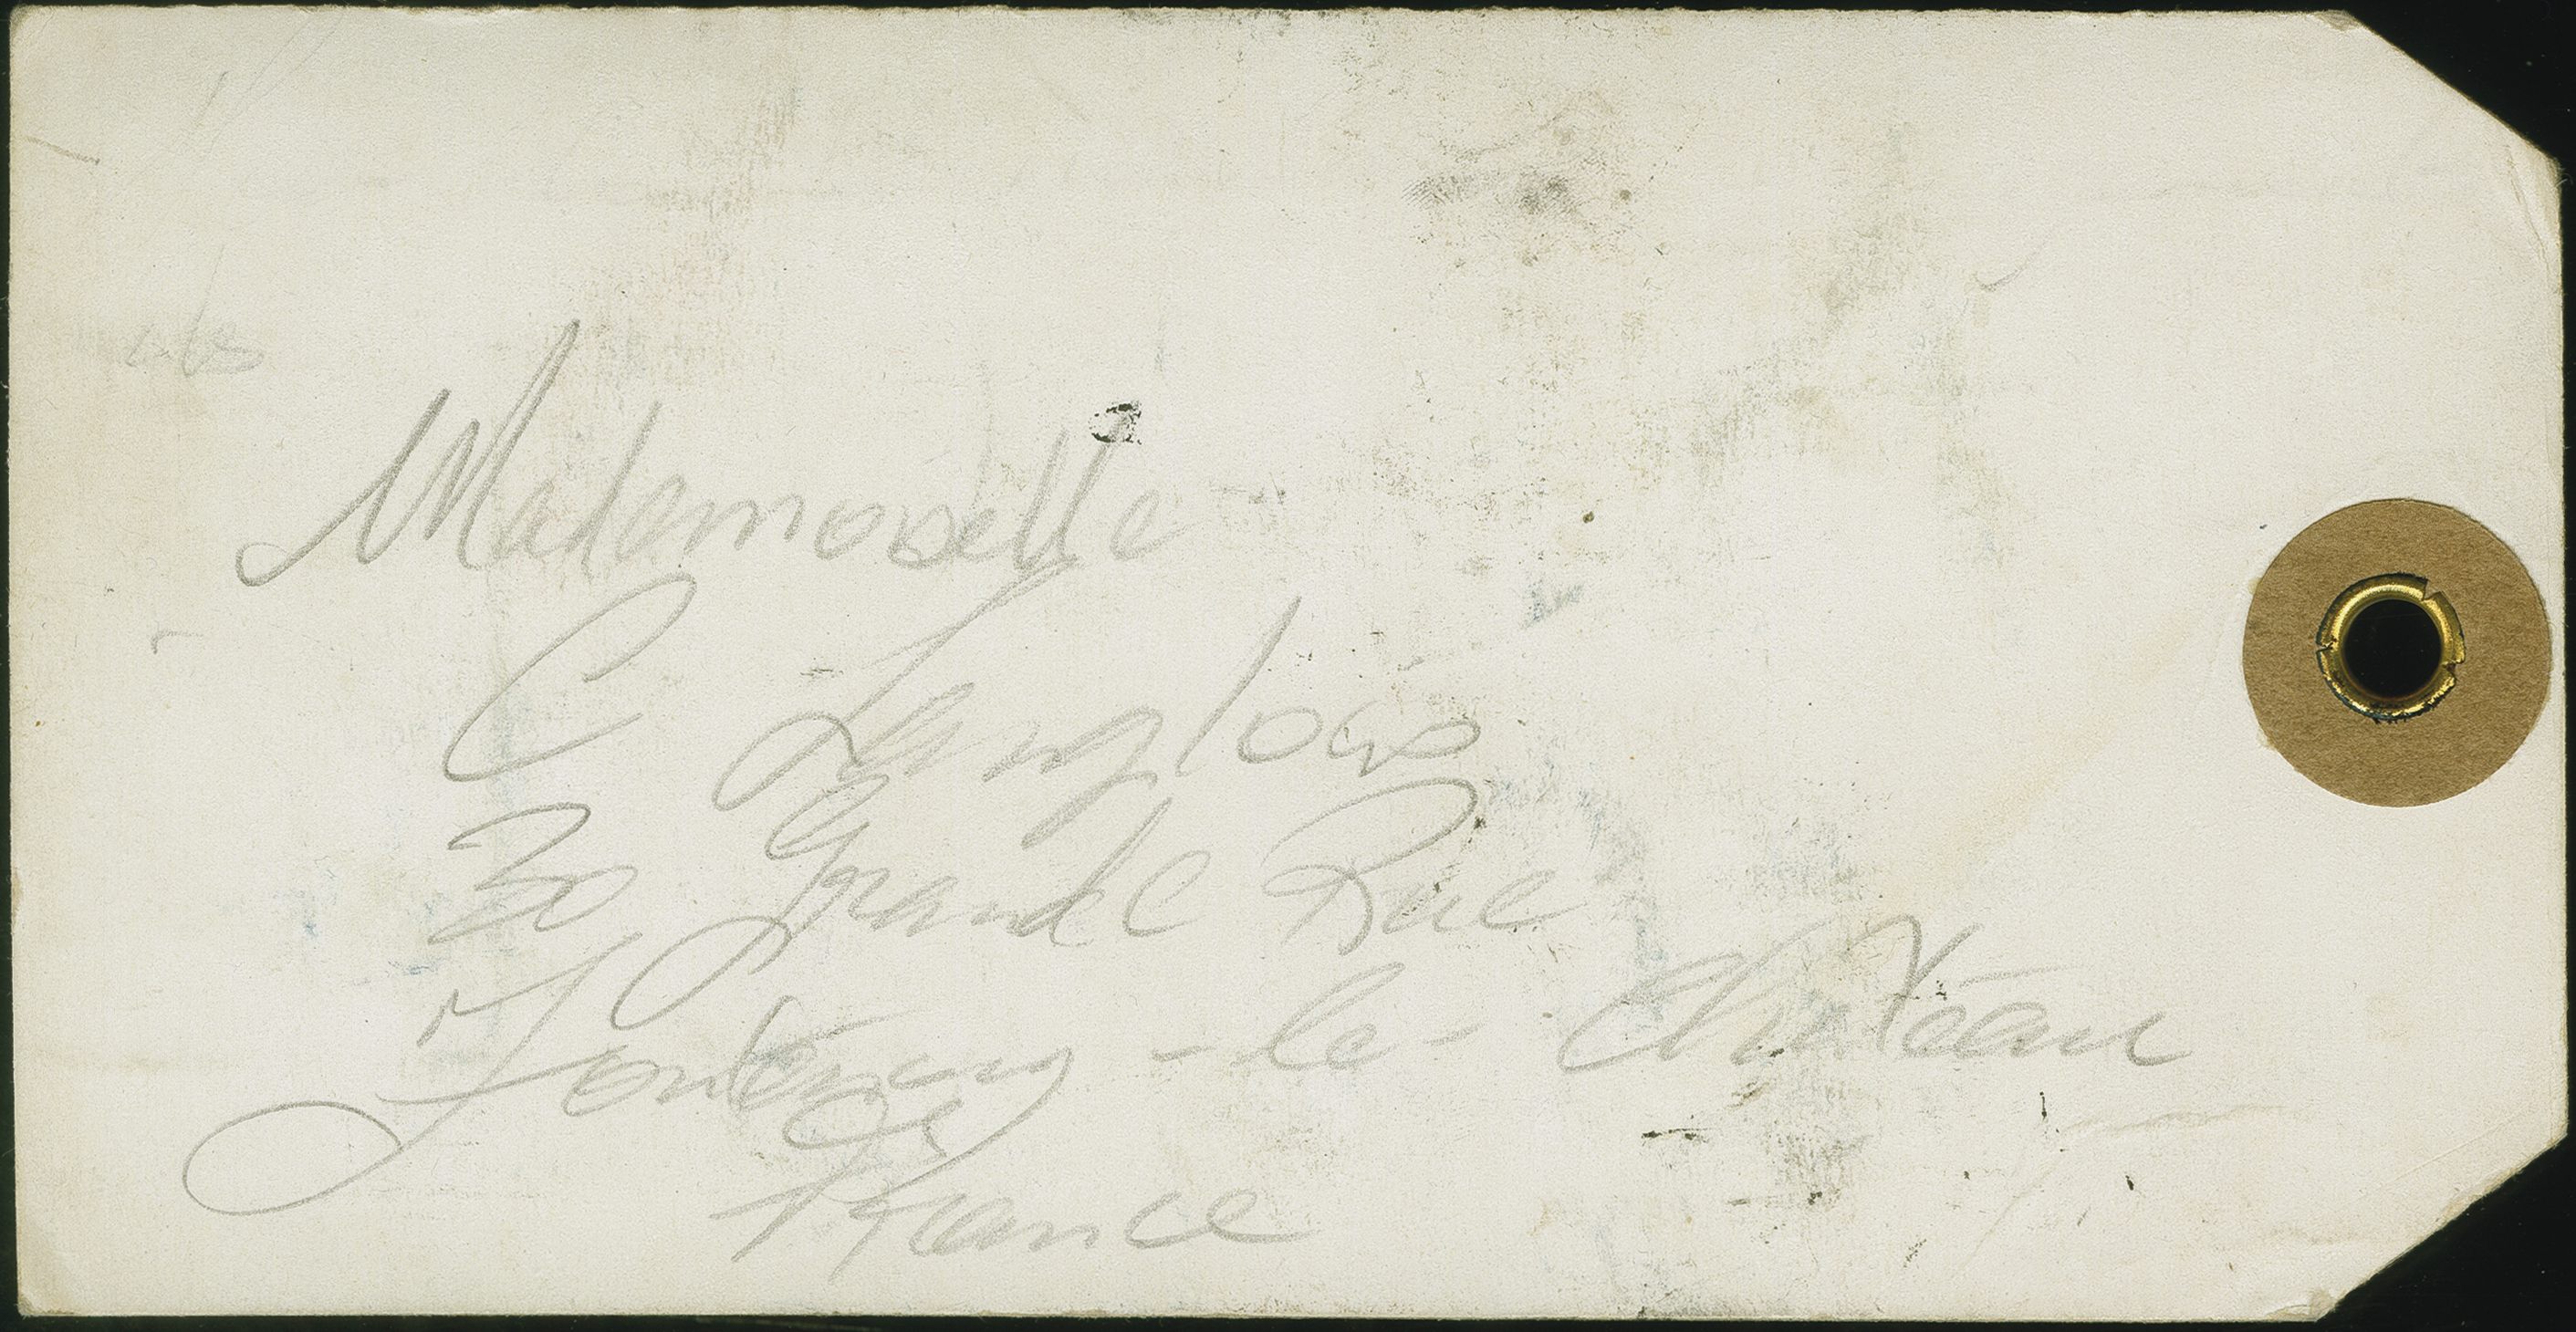 Mademoiselle
C Langlois
30 Grande Rue
Fontenay-le-Château
France